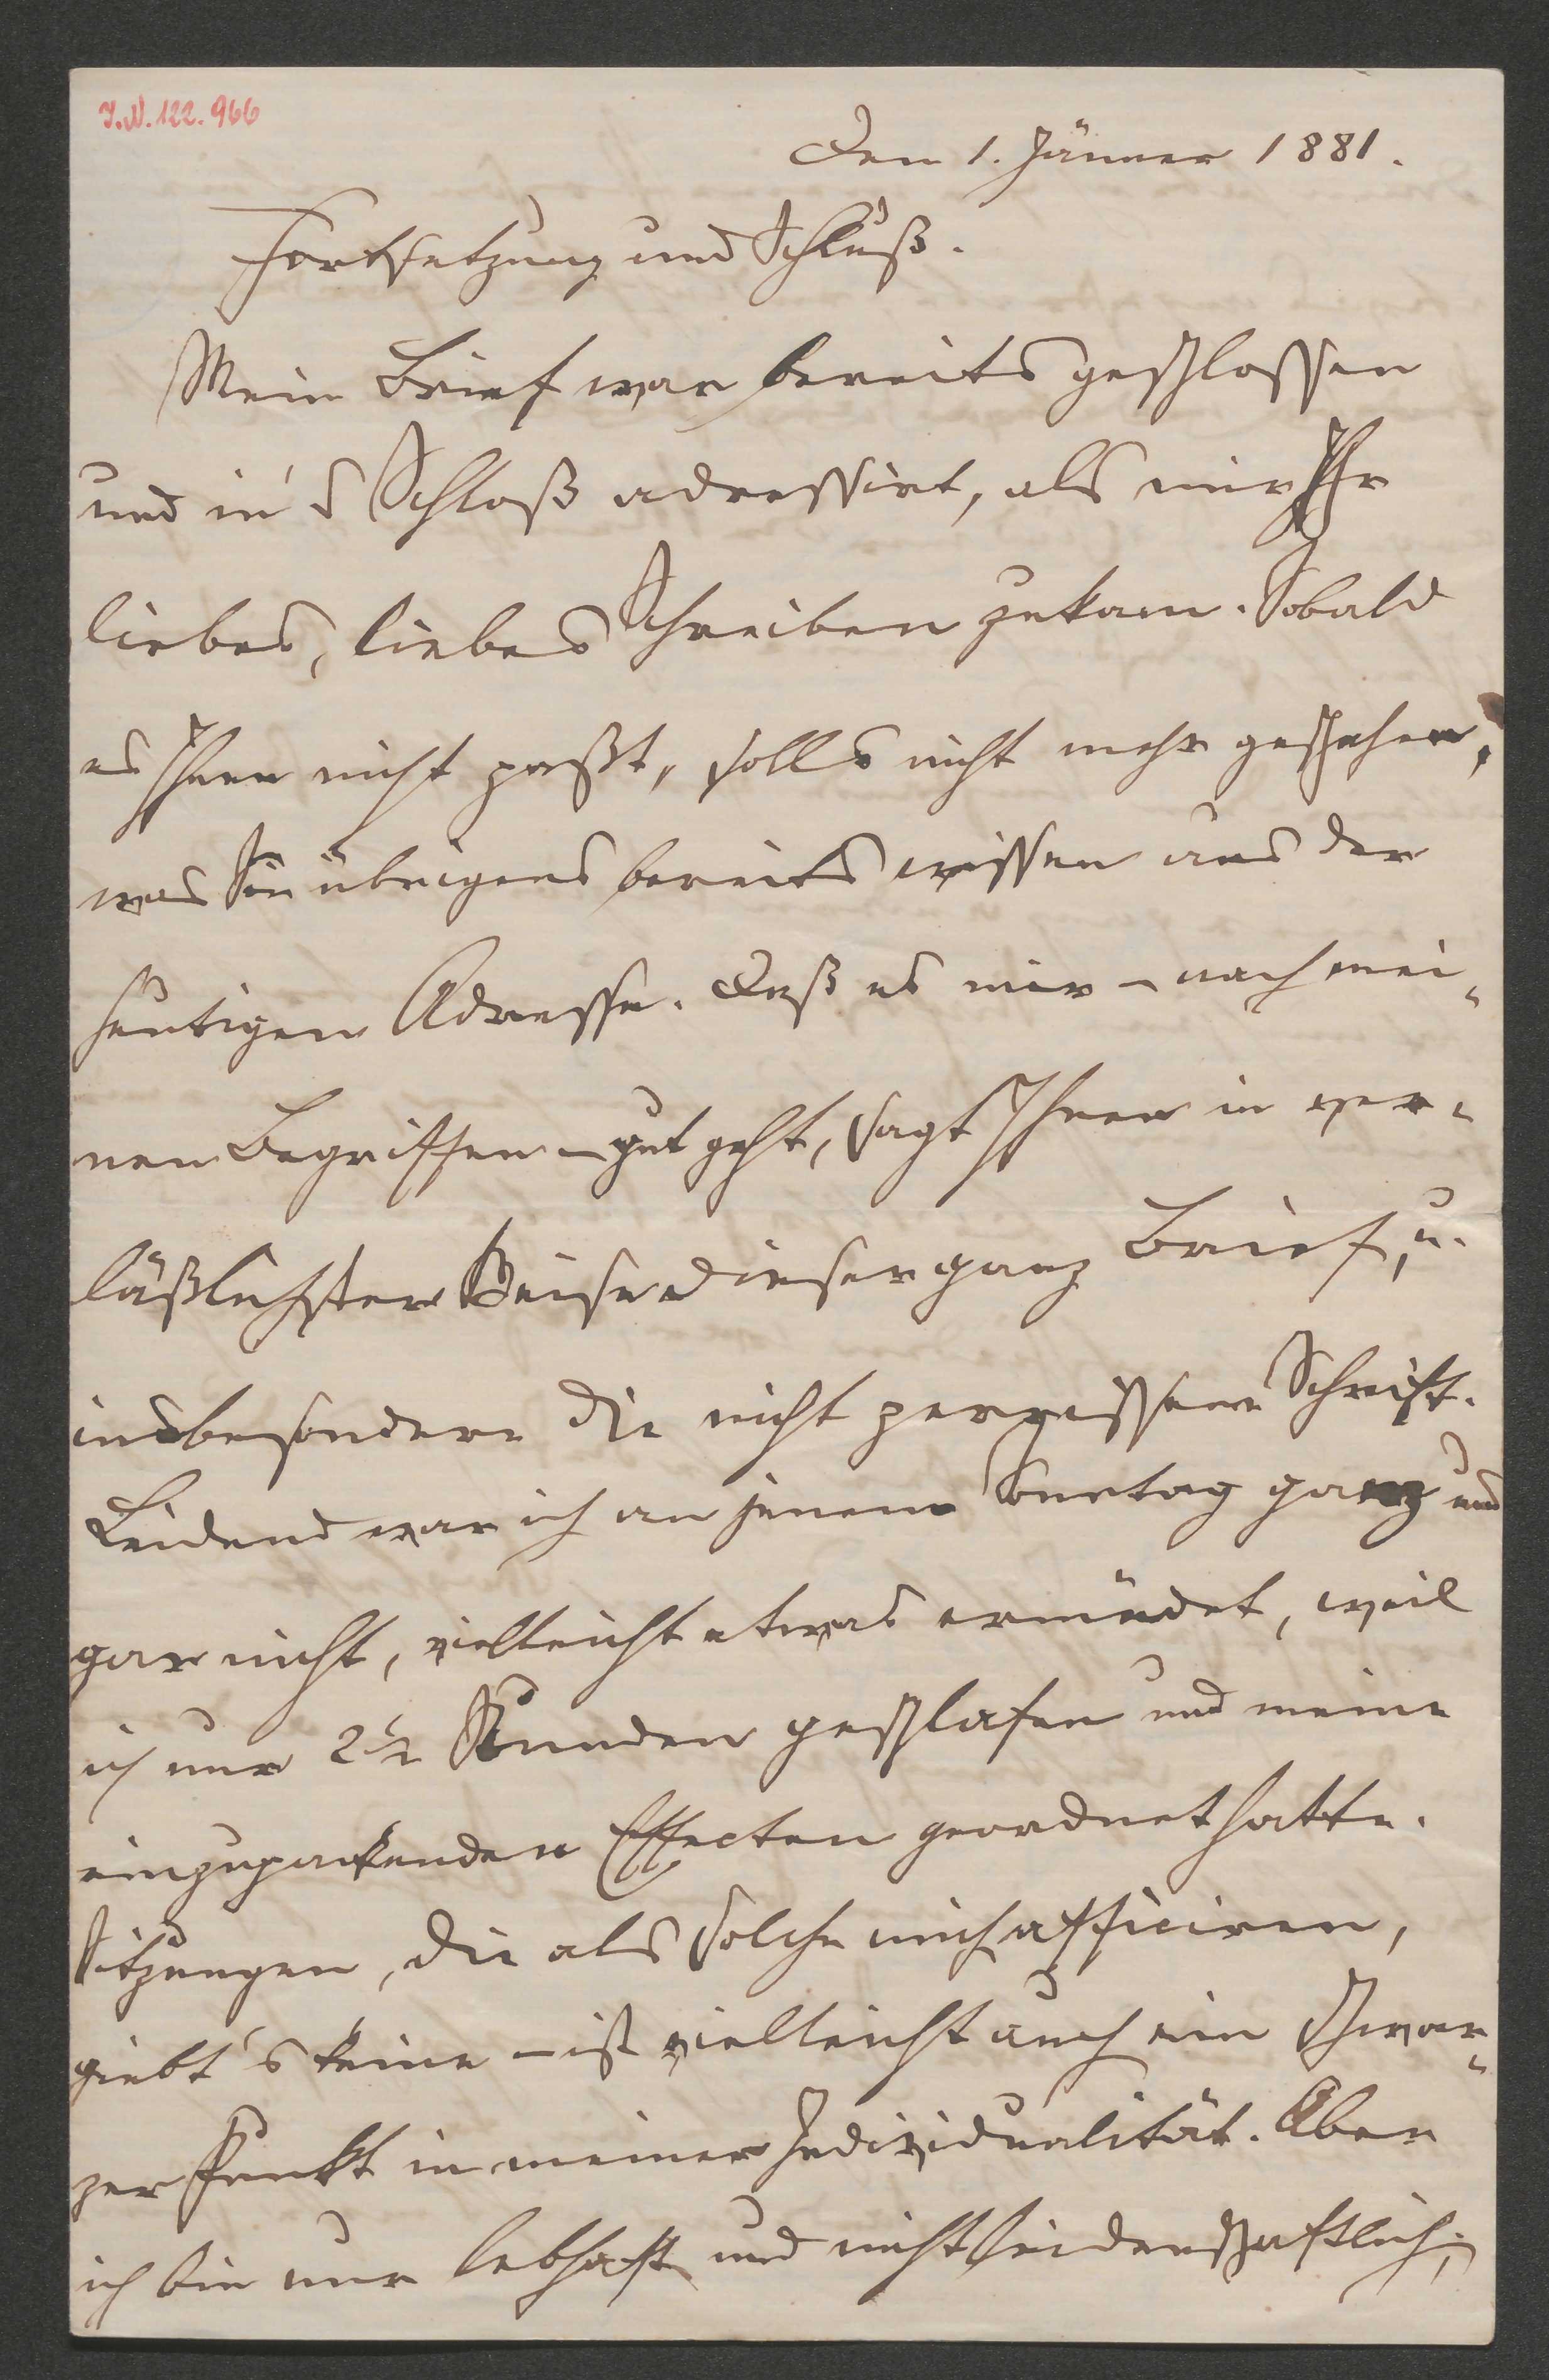 J.N. 122.966
Den 1. Jänner 1881.
Fortsetzung und Schluß.
Mein Brief war bereits geschlossen
und in's Schloß adressirt, als mir Ihr
liebes, liebes Schreiben zukam. Sobald
es Ihnen nicht paßt, solls nicht mehr geschehen,
was Sie übrigens bereits wissen aus der
heutigen Adresse. Daß es mir – nach mei-
nen Begriffen – gut geht, sagt Ihnen in ver-
läßlichster Weise dieser ganz Brief, u.
insbesondere die nicht zerrissene Schrift.
Leidend war ich an jenem Sonntag ganz und
gar nicht, vielleicht etwas ermüdet, weil
ich nur 2½ Stunden geschlafen und meine
einzupackenden Effecten geordnet hatte.
Sitzungen, die als solche mich afficiren,
giebt's keine – ist vielleicht auch ein schwar-
zer Punkt in meiner Individualität. Aber
ich bin nur lebhaft und nicht leidenschaftlich;